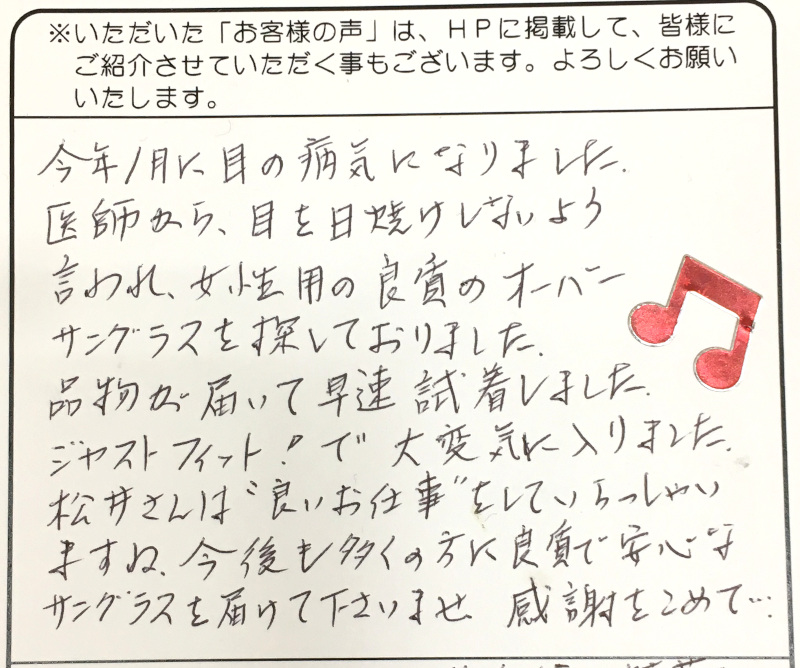 ※いただいた「お客様の声」は、HPに掲載して、皆様に
ご紹介させていただく事もございます。よろしくお願い
いたします。
今年1月に目の病気になりました。
医師から、目を日焼けしないよう
言われ、女性用の良質のオーバー
サングラスを探しておりました。
品物が届いて早速試着しました。
ジャストフィット!で大変気に入りました。
松井さんは〝良いお仕事〟をしていらっしゃい
ますね、今後も多くの方に良質で安心な
サングラスを届けて下さいませ 感謝をこめて…